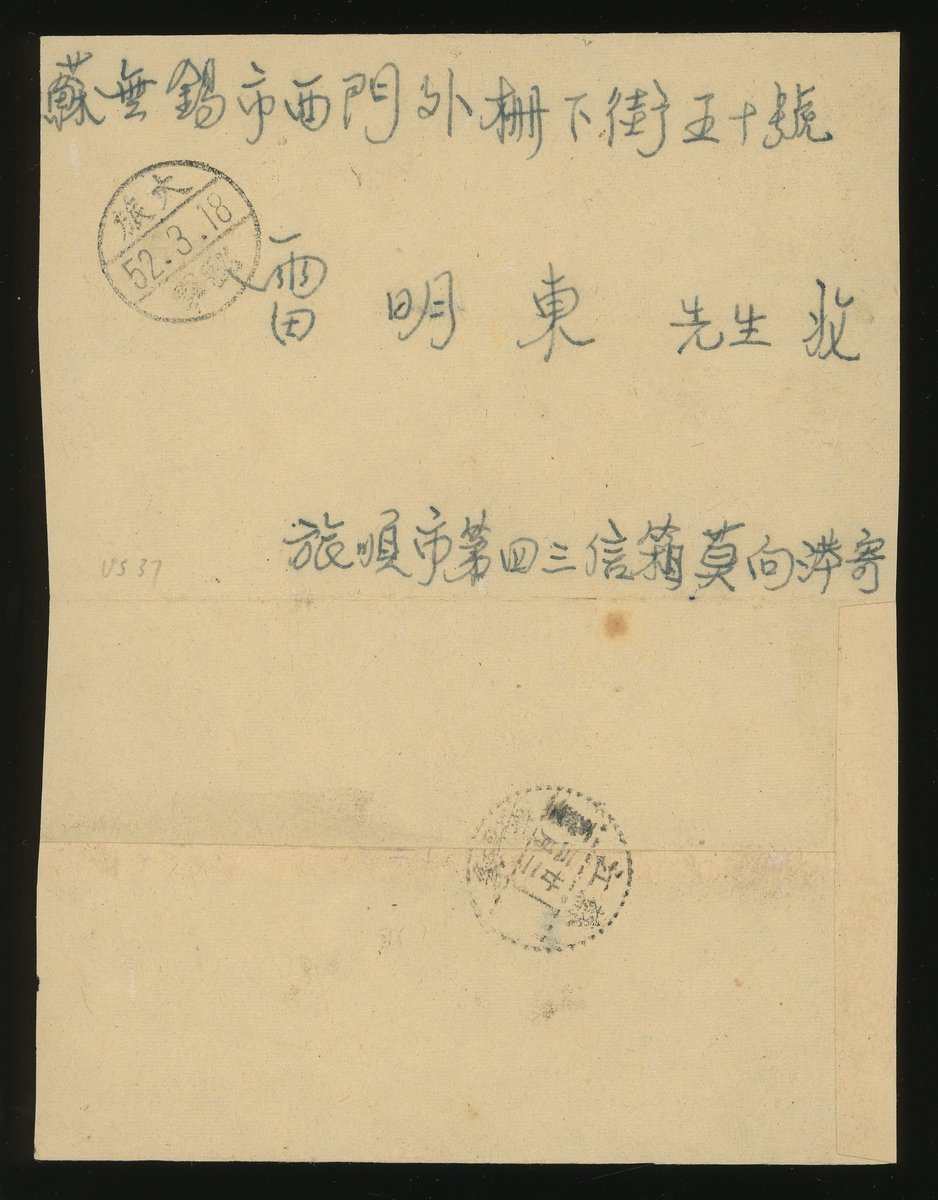 蘇無錫市西門外柵下街五十號
旅大
52.3.18
雷明東 先生
旅順市第四三信箱莫向萍寄
VS 37
江蘇